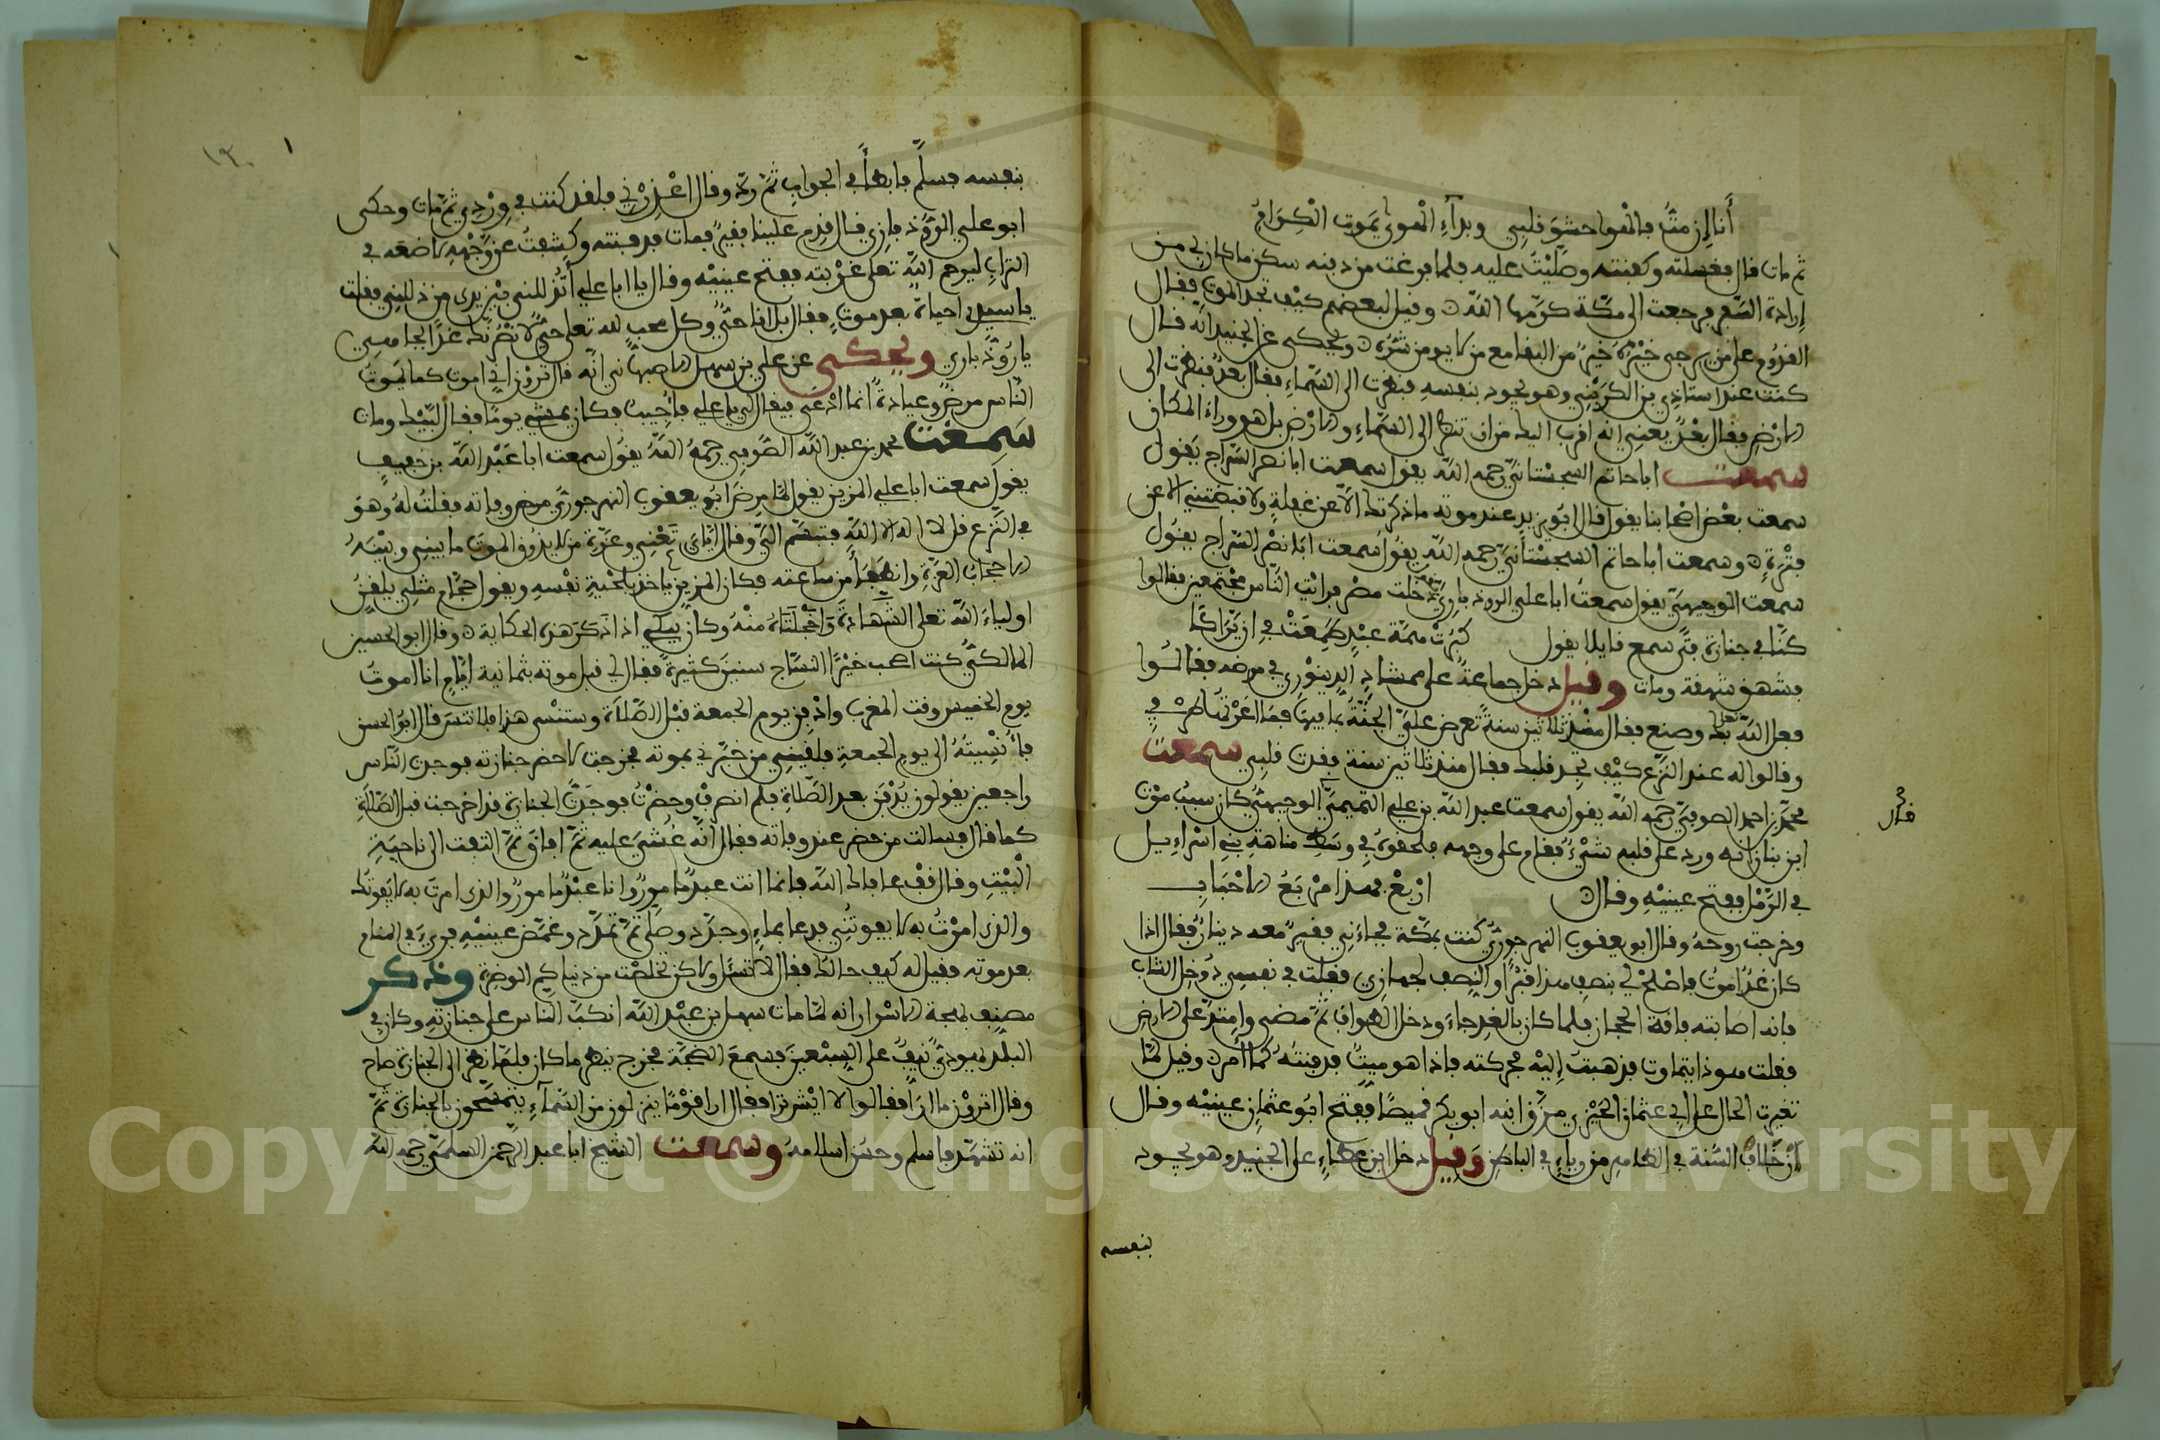 أنا إن مت فالهوى حشو قلبي وبداء الهوى يموت الكرام
ثم مات قال فغسلته وكفنته وصليت عليه فلما فرغت من دفنه سكن ما كان بي من
إرادة السفر فرجعت الى مكة كرمها الله وقيل لبعضهم كيف تجد الموت فقال
كنت عند استاذي بن الكريني وهو يجود بنفسه فنظرت الى السماء فقال بعد فنظرت الى
الارض فقال بعد يعني انه اقرب اليك من ان تنظر الى السماء والارض بل هو وراء المكان
سمعت ابا حاتم السجستاني رحمه الله يقول سمعت ابا نصر السراج يقول
سمعت بعض اصحابنا يقول قال ابو يزيد عند موته ما ذكرتك الا عن غفلة ولا قبضتني الا عن
فترة وسمعت ابا حاتم السجستاني رحمه الله يقول سمعت ابا نصر السراج يقول
سمعت الوجيهي يقول سمعت ابا علي الروذباري دخلت مصر فرايت الناس مجتمعين فقالوا
كنا في جنازة فتى سمع قايلا يقول كبرت همة عبد طمعت في ان تراكا
فشهق شهقة ومات وقيل دخل جماعة على ممشاد الدينوري في مرضه فقالوا
فعل الله بك وصنع فقال منذ ثلاثين سنة تعرض علي الجنة بما فيها فما اعرتها طرفي
وقالوا له عند النزع كيف تجد قلبك فقال منذ ثلاثين سنة فقدت قلبي سمعت
محمد بن احمد الصوفي رحمه الله يقول سمعت عبد الله بن علي التميمي الوجيهي كان سبب موت
قال
ابن بنان انه ورد على قلبه شيء فهام على وجهه فلحقوه في وسط متاهة بني اسراءيل
في الرمل ففتح عينيه وقال ارتع فهذا مرتع الاحباب
وخرجت روحه وقال ابو يعقوب النهرجوري كنت بمكة فجاءني فقير معه دينار فقال اذا
كان غدا اموت فاصلح لي بنصف هذا قبرا والنصف لجهازي فقلت في نفسي دوخل الشاب
فانه اصابته فاقة الحجاز فلما كان بالغد جاء ودخل الطواف ثم مضى وامتد على الارض
فقلت هوذا يتماوت فذهبت إليه فحركته فاذا هو ميت فدفنته كما امر وقيل لما
تغيرت الحال على ابي عثمان الحيري مزق ابنه ابو بكر قميصا ففتح ابو عثمان عينيه وقال
ان خلاف السنة في الظاهر من رياء في الباطن وقيل دخل ابن عطاء على الجنيد وهو يجود
بنفسه
١٣٠
بنفسه فسلم فابطأ في الجواب ثم رد وقال اعذرني فلقد كنت في وردي ثم مات وحكى
ابو علي الروذباري قال قدم علينا فقير فمات فدفنته وكشفت عن وجهه لاضعه في
التراب ليرحم الله تعلى غربته ففتح عينيه وقال يا ابا علي أتذللني بين يدي من ذللني فقلت
يا سيدي احياة بعد موت فقال بل انا حي وكل محب لله تعلى حي لانصرنك غدا بجاهي
يا روذباري ويحكى عن علي بن سهل الاصبهاني انه قال ترون اني اموت كما يموت
الناس مرض وعيادة انما ادعى فيقال لي يا علي فاجيب فكان يمشي يوما فقال لبيك ومات
سمعت محمد بن عبد الله الصوفي رحمه الله يقول سمعت ابا عبد الله بن خفيف
يقول سمعت ابا علي المزين يقول لما مرض ابو يعقوب النهرجوري مرض وفاته فقلت له وهو
في النزع قل لا اله الا الله فتبسم الي وقال اياي تعني وعزة من لا يذوق الموت ما بيني وبينه
الا حجاب العزة وانطفأ من ساعته فكان المزين ياخذ بلحية نفسه ويقول حجام مثلي يلقن
اولياء الله تعلى الشهادة واخجلتاه منه وكان يبكي اذا ذكر هذه الحكاية وقال ابو الحسين
المالكي كنت اصحب خيرا النساج سنين كثيرة فقال لي قبل موته بثمانية ايام انا اموت
يوم الخميس وقت المغرب وادفن يوم الجمعة قبل الصلاة وستنسى هذا فلا تنس قال ابو الحسن
فأنسيته الى يوم الجمعة فلقيني من خبرني بموته فخرجت لاحضر جنازته فوجدت الناس
راجعين يقولون يدفن بعد الصلاة فلم انصرف وحضرت فوجدت الجنازة قد اخرجت قبل الصلاة
كما قال فسالت من حضر عند وفاته فقال انه غشي عليه ثم افاق ثم التفت الى ناحية
البيت وقال قف عافاك الله فانما انت عبد مامور وانا عبد مامور والذي امرت به لا يفوتك
والذي امرت به لا يفوتني فدعا بماء وجدد وصلى ثم تمدد وغمض عينيه فرءي في المنام
بعد موته فقيل له كيف حالك فقال لا تسل ولاكن تخلصت من دنياكم الوضرة وذكر
مصنف بهجة الاسرار انه لما مات سهل بن عبد الله انكب الناس على جنازته وكان في
البلد يهودي نيف على السبعين فسمع الضجة فخرج ينظر ما كان فلما نظر الى الجنازة صاح
وقال اترون ما ارى فقالوا لا ايش ترى فقال ارى اقواما ينزلون من السماء يتمسحون بالجنازة ثم
انه تشهد فاسلم وحسن اسلامه وسمعت الشيخ ابا عبد الرحمن السلمي رحمه الله
Copyright © King Saud University